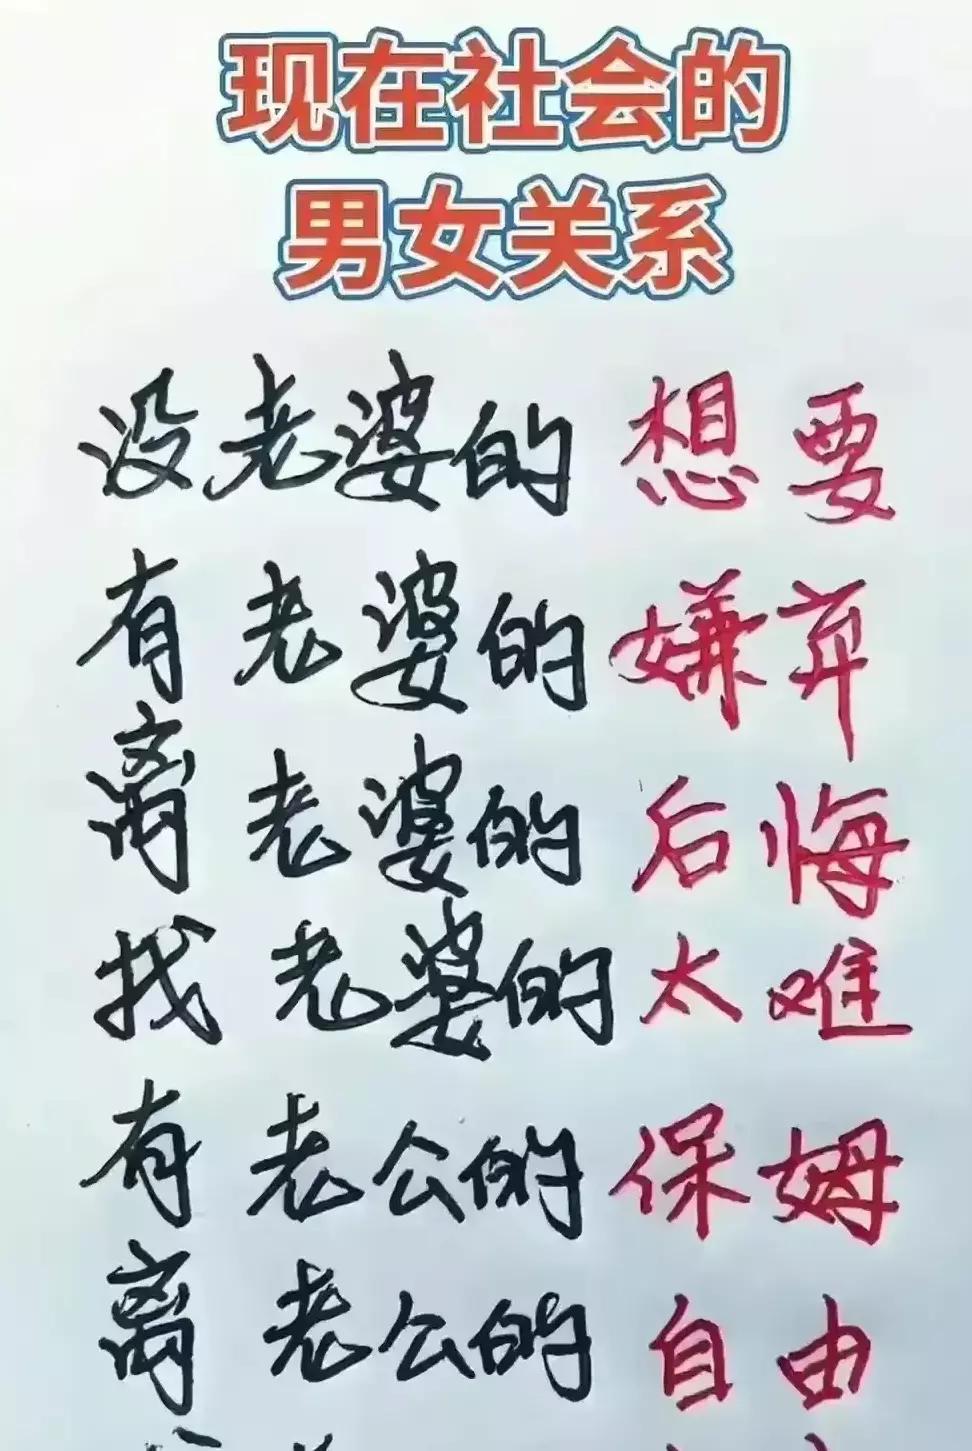 现在社会的
男女关系
没老婆的 想要
有老婆的 嫌弃
离老婆的 后悔
找老婆的 太难
有老公的 保姆
离老公的 自由